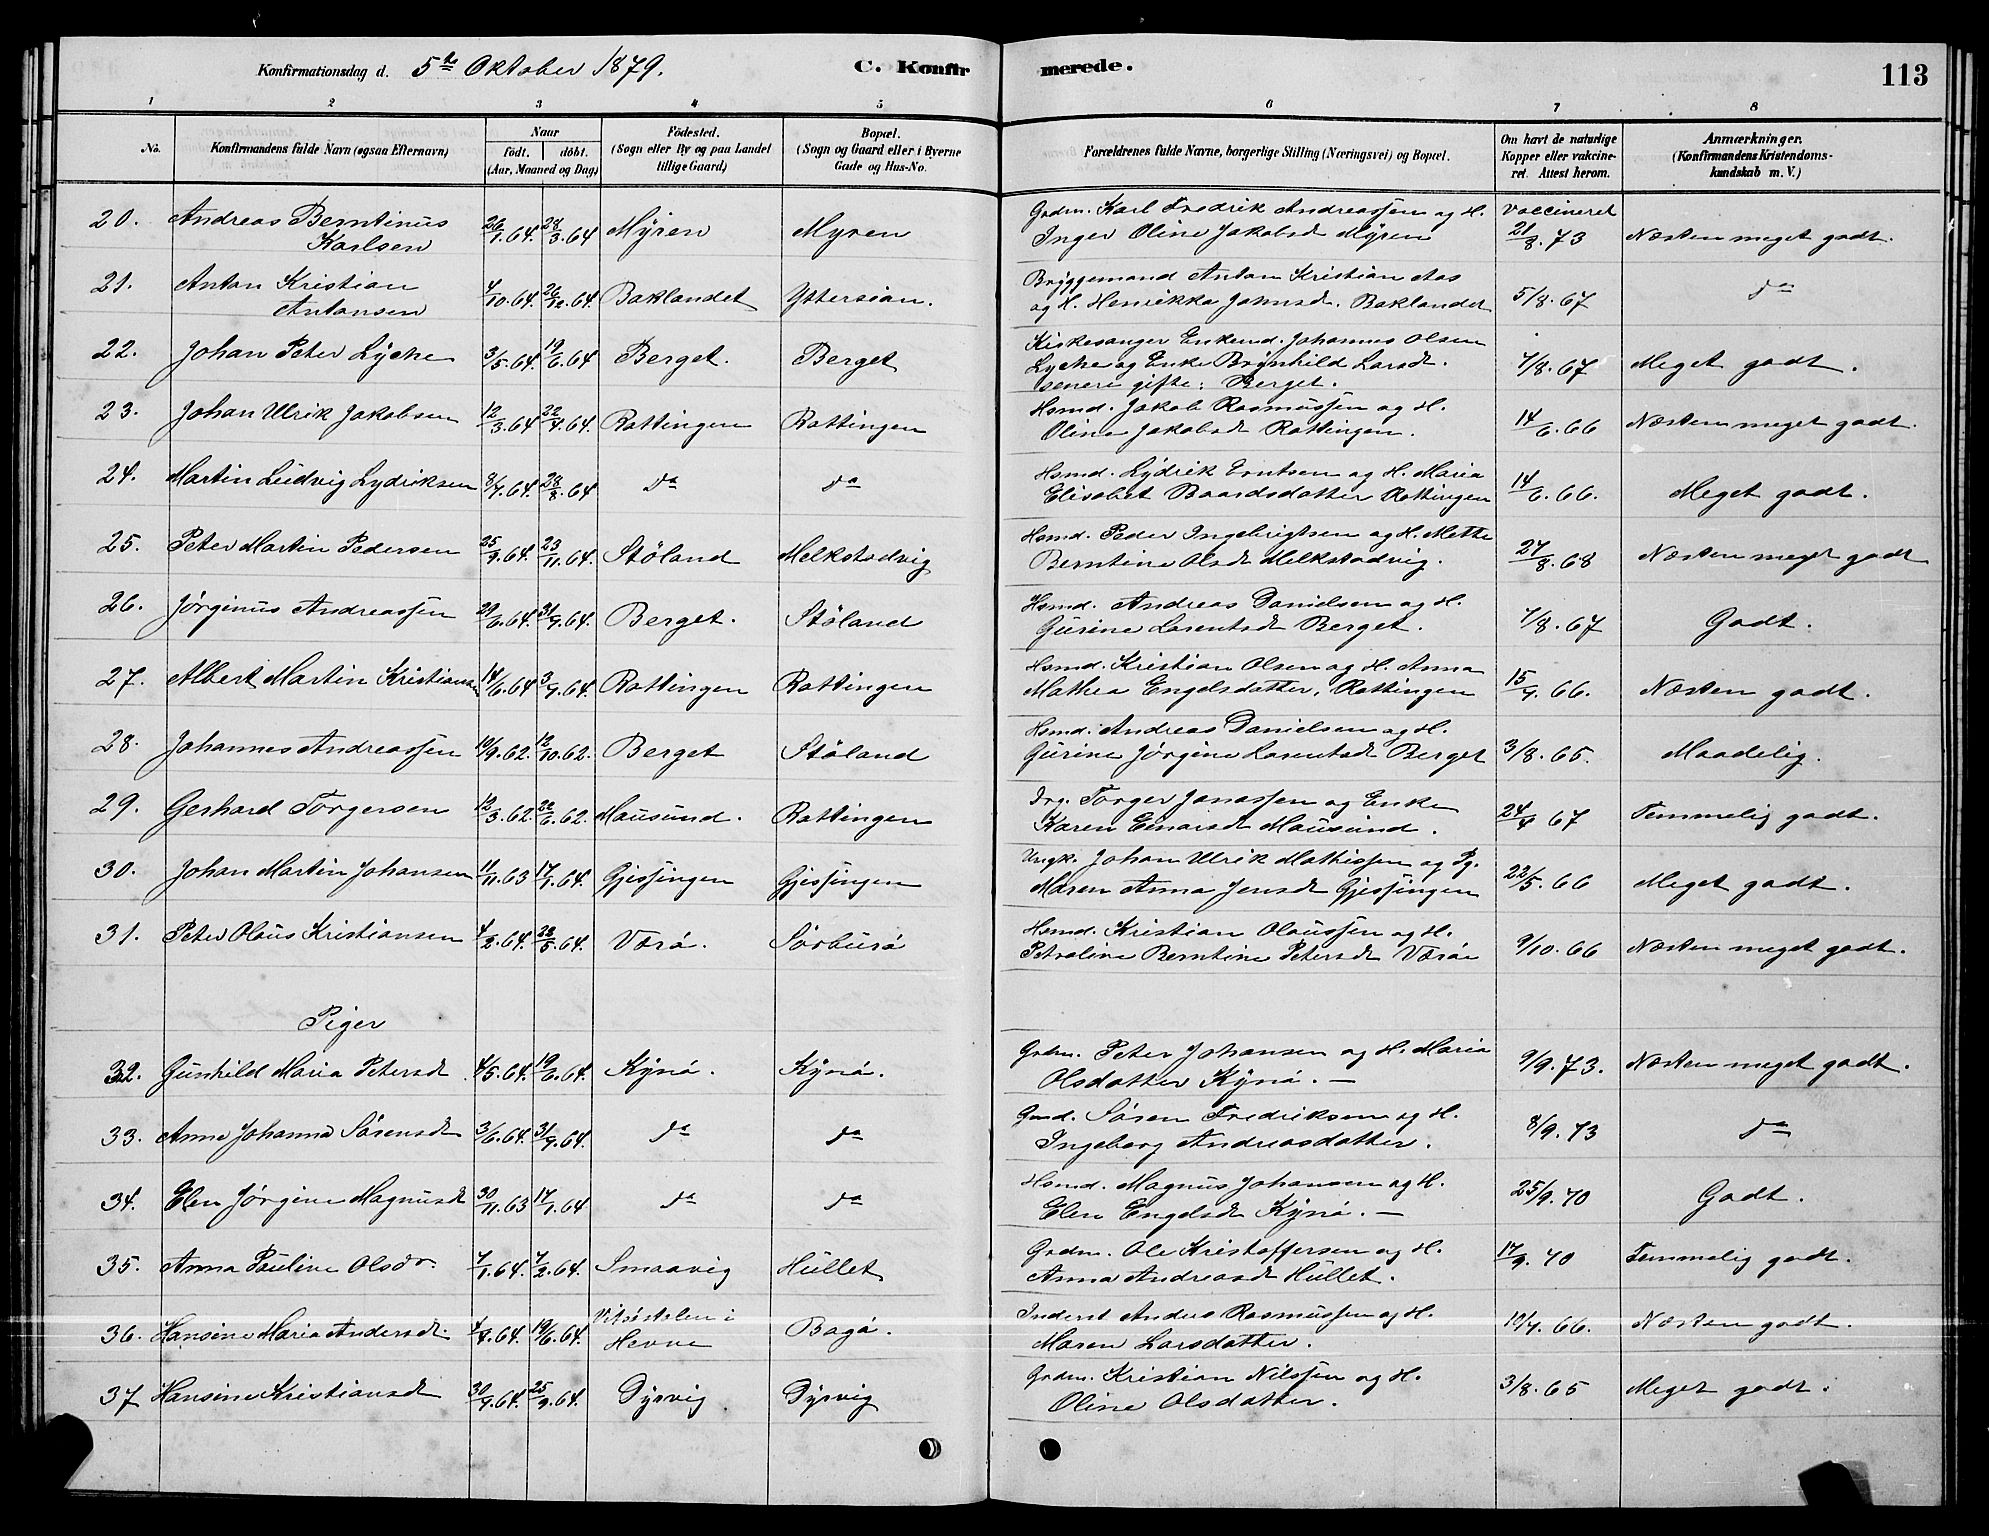 Konfirmationsdag d. 5te Oktober 1879. C. Konfirmerede. 113
1 2 3 4 5 6 7 8
No. Konfirmandens fulde Navn (ogsaa Efternavn) Naar födt. döbt. (Aar, Maaned og Dag) Födested. (Sogn eller By og paa Landet tillige Gaard) Bopæl. (Sogn og Gaard eller i Byerne Gade og Hus-No. Forældrenes fulde Navne, borgerlige Stilling (Næringsvei) og Bopæl. Om havt de naturlige Kopper eller vakcineret. Attest herom. Anmærkninger. (Konfirmandens Kristendomskundskab m. V.)
20. Andreas Berntinus Karlsen 26/1.64. 28/3.64 Myren Myren Grdm. Karl Fredrik Andreassen og H. Inger Oline Jakobsd Myren Vaccineret 21/8.73 Næsten meget godt.
21. Anton Kristian Antonsen 4/10.64. 26/12.64. Baklandet Yttersian. Bryggemand Anton Kristian Aas og H. Henrikka Johnsd. Baklandet 5/8.67 do
22. Johan Peter Lyche 3/5.64. 19/6.64 Berget. Berget Kirkesanger Enkemd. Johannes Olsen Lyche og Enke Brynhild Larsd. senere gifte: Berget. 7/8.67 Meget godt.
23. Johan Ulrik Jakobsen 12/3.64 22/4.64. Rottingen Rottingen Hsmd. Jakob Rasmussen og H. Oline Jakobsd Rottingen. 14/6.66 Næsten meget godt.
24. Martin Ludvig Lydriksen 8/7.64. 28/8.64 do do Hsmd. Lydrik Erntsen og H. Maria Elisabet Baardsdatter Rottingen 14/6.66. Meget godt.
25. Peter Martin Pedersen 25/9.64. 23/11.64. Stöland Melkstadvig Hsmd. Peder Ingebrigtsen og H. Mette Berntine Olsd Melkstadvig. 27/8.68 Næsten meget godt
26. Jørginus Andreassen 29/6.64. 31/7.64. Berget. Stöland Hsmd. Andreas Danielsen og H. Gurine Larentsd Berget. 7/8.67 Godt.
27. Albert Martin Kristiansen 14/6.64 3/9.64. Rottingen Rottingen Hsmd. Kristian Olsen og H. Anna Mathea Engelsdatter, Rottingen 15/9.66. Næsten godt.
28. Johannes Andreassen 10/9.62. 12/10.62. Berget Stöland Hsmd. Andreas Danielsen og H. Gurine Jørgine Larentsd Berget 3/8.65. Maadelig.
29. Gerhard Torgersen 12/3.62. 22/6.62. Mausund. Rottingen Drg. Torger Jonassen og Enke Karen Einarsd Mausund. 24/8 67 Temmelig godt.
30. Johan Martin Johansen 11/11.63 17/1.64. Gjessingen Gjessingen Ungk. Johan Ulrik Mathissen og Pg. Maren Anna Jensd Gjessingen 22/5.66 Meget godt.
31. Peter Olaus Kristiansen 4/2.64. 28/5.64. Værö. Sörburö Hsmd. Kristian Olaussen og H. Petroline Berntine Petersd Værön 9/10.66 Næsten meget godt.
Piger
32. Gunhild Maria Petersd 4/5.64. 19/6.64. Kynö. Kynö. Grdm. Peter Johansen og H. Maria Olsdatter Kynö. — 9/9.73. Næsten meget godt.
33. Anne Johanna Sörensd 3/6.64. 31/7.64. do do Gmd. Sören Fredriksen og H. Ingeborg Andreasdatter. 8/9.73 do
34. Elen Jørgine Magnusd 30/11.63 17/1.64 do do Hsmd. Magnus Johansen og H. Elen Engelsd Kynö. — 25/9.70 Godt.
35. Anna Pauline Olsdr. 7/1.64. 7/2.64. Smaavig Hullet Grdm. Ole Kristoffersen og H. Anna Andreasd Hullet. 17/9.70 Temmelig godt.
36. Hansine Maria Andersd. 4/4.64. 19/6.64. i Hevne Bagö. Inderst Anders Rasmussen og H. Maren Larsdatter. 10/7.66. Næsten godt.
37 Hansine Kristiansd 30/7.64. 25/9.64. Dyrvig Dyrvig Grdm. Kristian Nilssen og H. Oline Olsdatter. 3/8.65 Meget godt.